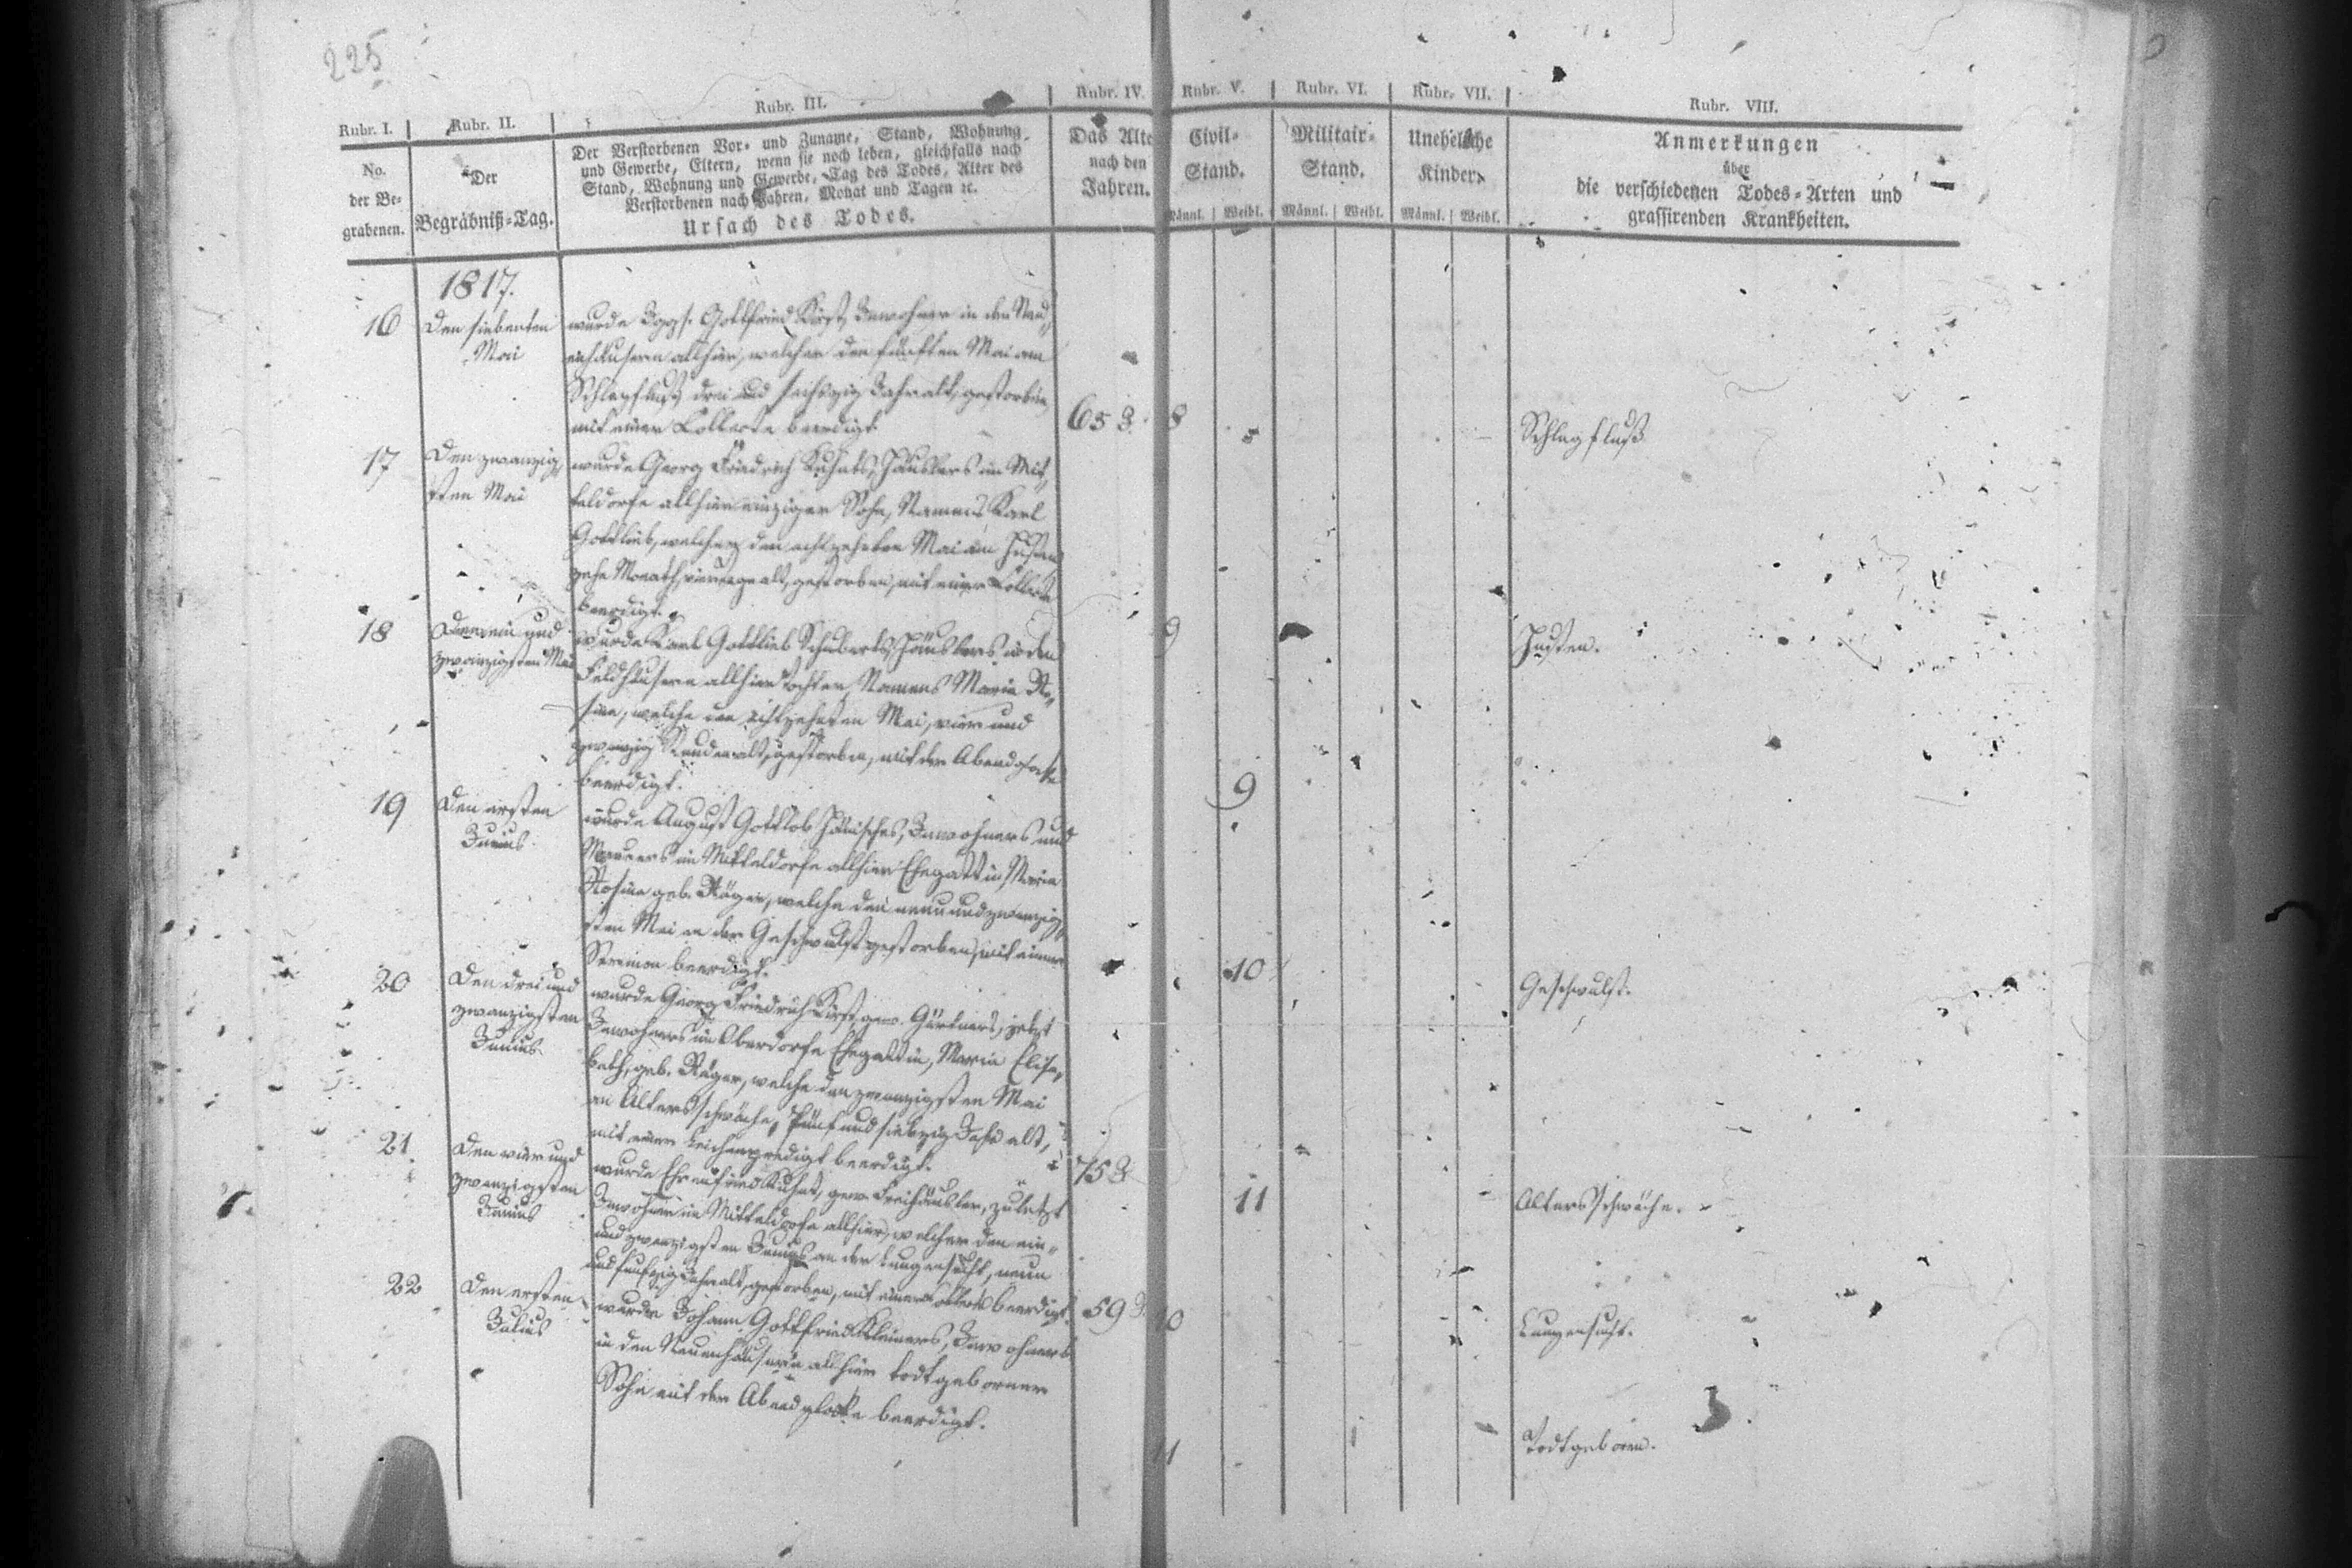 225
Rubr. I. Rubr. II. Rubr. III. Rubr. IV. Rubr. V. Rubr. VI. Rubr. VII. Rubr. VIII.
No.
der Be-
grabenen.
Der
Begräbniß-Tag.
Der Verstorbenen Vor- und Zuname, Stand, Wohnung
und Gewerbe, Eltern, wenn sie noch leben, gleichfalls nach
Stand, Wohnung und Gewerbe, Tag des Todes, Alter des
Verstorbenen nach Jahren, Monat und Tagen ꝛc.
Ursach des Todes.
Das Alte
nach den
Jahren.
Civil-
Stand.
Männl. Weibl.
Militair-
Stand.
Männl. Weibl.
Uneheliche
Kinder.
Männl. Weibl.
Anmerkungen
über
die verschiedenen Todes-Arten und
grassirenden Krankheiten.
1817.
16
Den siebenten
Mai
wurde Iggs. Gottfried Kirst, Inwohner in den Neu-
enhäusern allhier, welcher den fünften Mai am
Schlagfluß, drei und sechszig Jahr alt, gestorben
mit einer Collecte beerdigt.
65 J. 8
Schlagfluß
17
Den zwanzig
sten Mai
wurde Georg Friedrich Kuhnts, Häuslers im Mit-
teldorfe allhier einziger Sohn, Namens Karl
Gottlieb, welcher den achtzehnten Mai am Husten
zehn Monath, alt, gestorben, mit einer Collecte
beerdigt.
9
Husten.
18
Den ein und
zwanzigsten Mai
wurde Karl Gottlieb Schuberts, Häuslers in den
Feldhäusern allhier Tochter, Namens Maria Ro-
sina, welche den achtzehnten Mai, vier und
zwanzig Stunden alt, gestorben, mit der Abendglocke
beerdigt.
9
19
Den ersten
Junius.
wurde August Gottlob Hänisches, Inwohners und
Maurers im Mitteldorfe allhier Ehegattin Maria
Rosina geb. Röger, welche den neun und zwanzig-
sten Mai an der Geschwulst gestorben, mit einem
Sermon beerdigt.
10
Geschwulst.
20
Den drei und
zwanzigsten
Junius.
wurde Georg Friedrich Kirst, gew. Gärtners, jetzt
Inwohners im Oberdorfe Ehegattin, Maria Elisa-
beth, geb. Röger, welche den zwanzigsten Mai
an Altersschwäche, Fünf und siebzig Jahr alt,
mit einer Leichenpredigt beerdigt.
75 J.
11
Altersschwäche.
21.
Den vier und
zwanzigsten
Junius
wurde Ehrenfried Kuhnt, gew. Freihäusler, zuletzt
Inwohner im Mitteldorfe allhier, welcher den ein-
und zwanzigsten Junius an der Lungensucht, neun
und funfzig Jahr alt, gestorben, mit einer Collecte beerdigt.
59 J. 10
Lungensucht.
22
Den ersten
Julius
wurde Johann Gottfried Kleiners, Inwohners
in den Neuenhäusern allhier todtgeborner
Sohn mit der Abendglocke beerdigt.
11
Todtgeboren.